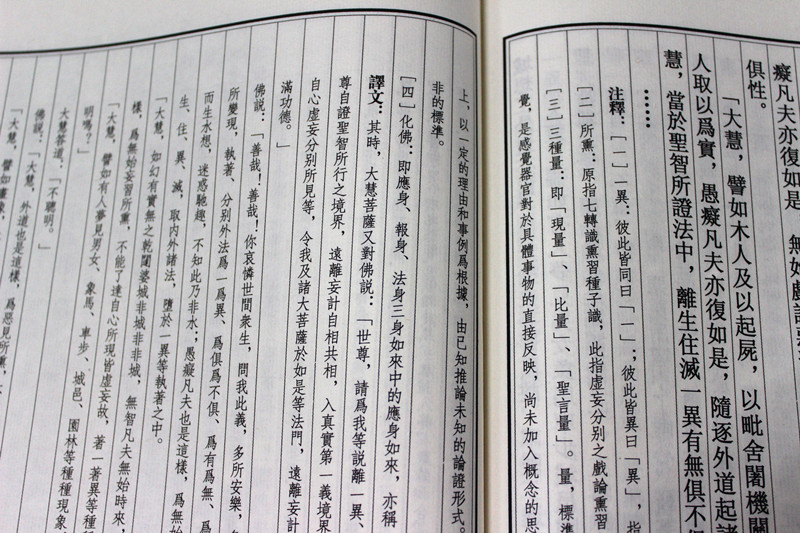 癡凡夫亦復如是
俱性。
「大慧，譬如木人及以起屍，以毗舍闍機關
人取以爲實，愚癡凡夫亦復如是，隨逐外道起諸
慧，當於聖智所證法中，離生住滅一異有無俱不俱
……
注釋：［一］一異：彼此皆同曰「一」；彼此皆異曰「異」，指
［二］所熏：原指七轉識熏習種子識，此指虛妄分別之戲論熏習
［三］三種量：即「現量」、「比量」、「聖言量」。量，標準
覺，是感覺器官對於具體事物的直接反映，尚未加入概念的思
上，以一定的理由和事例爲根據，由已知推論未知的論證形式。
非的標準。
［四］化佛：即應身、報身、法身三身如來中的應身如來，亦稱
譯文：其時，大慧菩薩又對佛説：「世尊，請爲我等説離一異、
尊自證聖智所行之境界，遠離妄計自相共相，入真實第一義境界
自心虛妄分別所見等，令我及諸大菩薩於如是等法門，遠離妄計
滿功德。」
佛説：「善哉！善哉！你哀憐世間衆生，問我此義，多所安樂，
所變現，執著、分別外法爲一爲異、爲俱爲不俱、爲有爲無、爲
而生水想，迷惑馳趣，不知此乃非水；愚癡凡夫也是這樣，爲無始
生、住、異、滅，取内外諸法，墮於一異等執著之中。
「大慧，如幻有實無之乾闥婆城非城非非城，無智凡夫無始時來，
樣，爲無始妄習所熏，不能了達自心所現皆虛妄故，著一著異等種
「大慧，譬如有人夢見男女、象馬、車步、城邑、園林等種種現象
明嗎？」
大慧答道：「不聰明。」
佛説：「大慧，外道也是這樣，爲惡見所熏，
「大慧，譬如畫